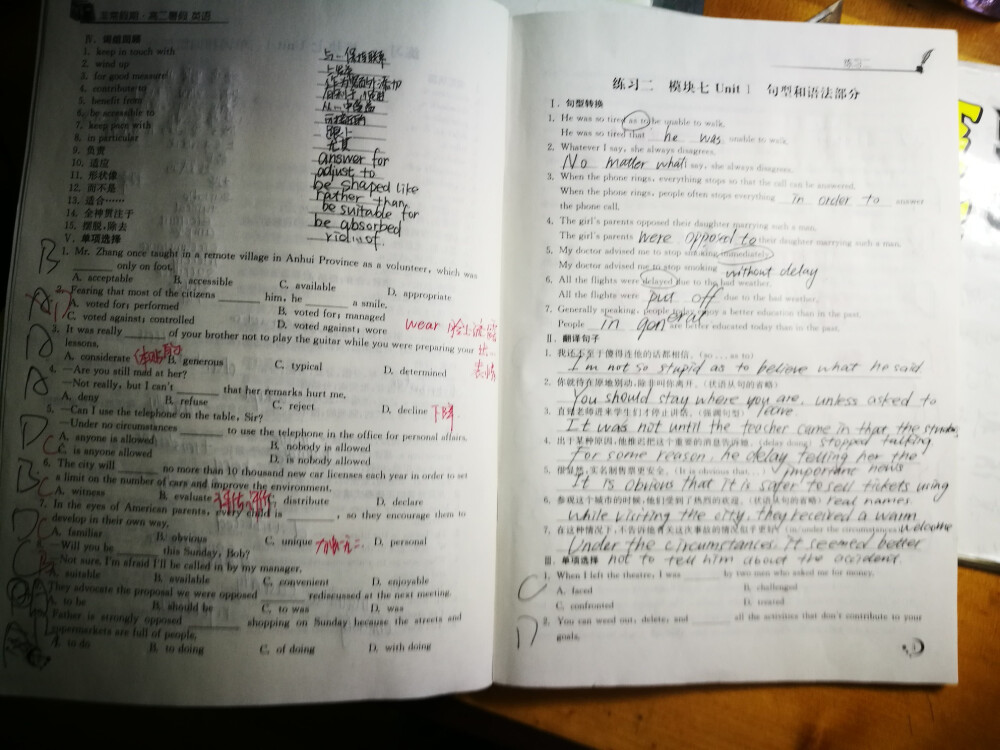 高二暑假 英语
Ⅳ. 词组回顾
1. keep in touch with 与…保持联系
2. wind up
3. for good measure
4. contribute to
5. benefit from
6. be accessible to
7. keep pace with 跟上
8. in particular 尤其
9. 负责 answer for
10. 适应 adjust to
11. 形状像 be shaped like
12. 而不是 rather than
13. 适合…… be suitable for
14. 全神贯注于 be absorbed
15. 摆脱,除去
Ⅴ. 单项选择
B
1. Mr. Zhang once taught in a remote village in Anhui Province as a volunteer, which was
only on foot.
A. acceptable B. accessible C. available D. appropriate
2. Fearing that most of the citizens him, he a smile.
A. voted for; performed B. voted for; managed
C. voted against; controlled D. voted against; wore wear
A
3. It was really of your brother not to play the guitar while you were preparing your
lessons.
A. considerate B. generous C. typical D. determined
A
4. —Are you still mad at her?
—Not really, but I can't that her remarks hurt me.
A. deny B. refuse C. reject D. decline 下降
D
5. —Can I use the telephone on the table, Sir?
—Under no circumstances to use the telephone in the office for personal affairs.
A. anyone is allowed B. nobody is allowed
C. is anyone allowed D. is nobody allowed
6. The city will no more than 10 thousand new car licenses each year in order to set
a limit on the number of cars and improve the environment.
A. witness B. evaluate distribute D. declare
7. In the eyes of American parents, every child is , so they encourage them to
develop in their own way.
A. familiar B. obvious C. unique D. personal
—Will you be this Sunday, Bob?
—Not sure. I'm afraid I'll be called in by my manager.
suitable B. available C. convenient D. enjoyable
They advocate the proposal we were opposed rediscussed at the next meeting.
A. to be B. should be C. to was D. was
Father is strongly opposed shopping on Sunday because the streets and
supermarkets are full of people.
A. to do B. to doing C. of doing D. with doing
练习二
练习二 模块七 Unit 1 句型和语法部分
Ⅰ. 句型转换
1. He was so tired as to be unable to walk.
He was so tired that he was unable to walk.
2. Whatever I say, she always disagrees.
No matter what I say, she always disagrees.
3. When the phone rings, everything stops so that the call can be answered.
When the phone rings, people often stops everything in order to answer
the phone call.
4. The girl's parents opposed their daughter marrying such a man.
The girl's parents were opposed to their daughter marrying such a man.
5. My doctor advised me to stop smoking immediately.
My doctor advised me to stop smoking without delay
6. All the flights were delayed due to the bad weather.
All the flights were put off due to the bad weather.
7. Generally speaking, people today enjoy a better education than in the past.
People in goneral are better educated today than in the past.
Ⅱ. 翻译句子
1. 我还不至于傻得连他的话都相信。(so...as to)
I'm not so stupid as to believe what he said.
2. 你就待在原地别动,除非叫你离开。(状语从句的省略)
You should stay where you are, unless asked to
leave
3. 直到老师进来学生们才停止讲话。(强调句型)
It was not until the teacher came in that the students
stopped talking.
4. 出于某种原因,他推迟把这个重要的消息告诉她。(delay doing)
For some reason, he delay telling her the
important news
5. 很显然,实名制售票更安全。(It is obvious that...)
It is obvious that it is safer to sell tickets using
real names
6. 参观这个城市的时候,他们受到了热烈的欢迎。(状语从句的省略)
while visiting the city, they received a warm
welcome
7. 在这种情况下,不告诉他有关这次事故的情况似乎更好。(in/under the circumstances)
Under the circumstances, it seemed better
not to tell him about the accident.
Ⅲ. 单项选择
C
1. When I left the theatre, I was by two men who asked me for money.
A. faced B. challenged
C. confronted D. treated
D
2. You can weed out, delete, and all the activities that don't contribute to your
goals.